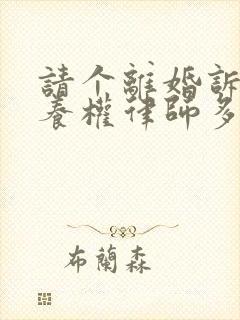 請个離婚訴
養權律師多
布蘭森